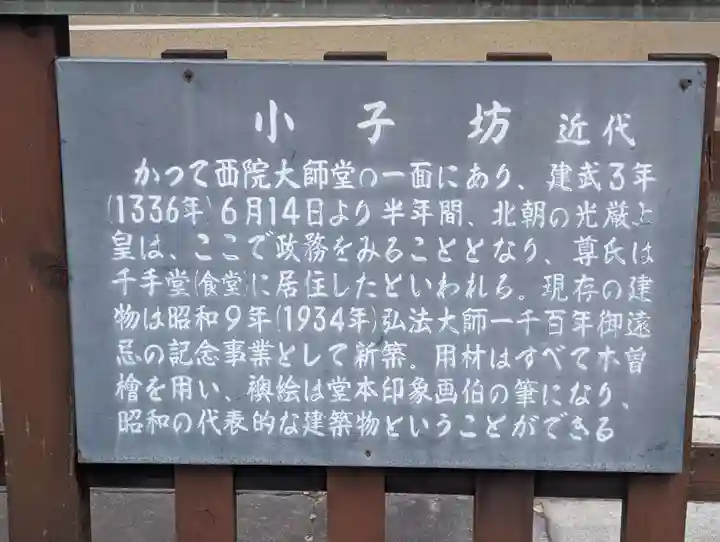 小子坊 近代
かつて西院大師堂の一面にあり、建武3年
(1336年)6月14日より半年間、北朝の光厳上
皇は、ここで政務をみることとなり、尊氏は
千手堂(食堂)に居住したといわれる。現存の建
物は昭和9年(1934年)弘法大師一千百年御遠
忌の記念事業として新築。用材はすべて木曽
檜を用い、襖絵は堂本印象画伯の筆になり、
昭和の代表的な建築物ということができる